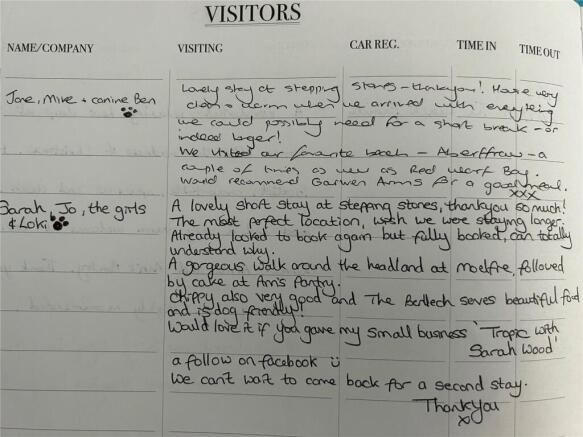 VISITORS
NAME/COMPANY VISITING CAR REG. TIME IN TIME OUT
Jane, Mike + canine Ben
Lovely stay at stepping stones - thankyou! House very
clean + warm when we arrived with everything
we could possibly need for a short break - or
indeed longer!
We visited our favourite beach - Aberffraw - a
couple of times as well as Red Wharf Bay.
Would recommend Arms for a good meal.
xxx
Sarah, Jo, the girls
& Loki
A lovely short stay at stepping stones, thankyou so much!
The most perfect location, wish we were staying longer.
Already looked to book again but fully booked, can totally
understand why.
A gorgeous walk around the headland at moelfre, followed
by cake at Ann's Pantry.
Chippy also very good and The serves beautiful food
and is dog friendly!
Would love it if you gave my small business 'Tropic with
Sarah Wood'
a follow on facebook
We can't wait to come back for a second stay.
Thankyou
x